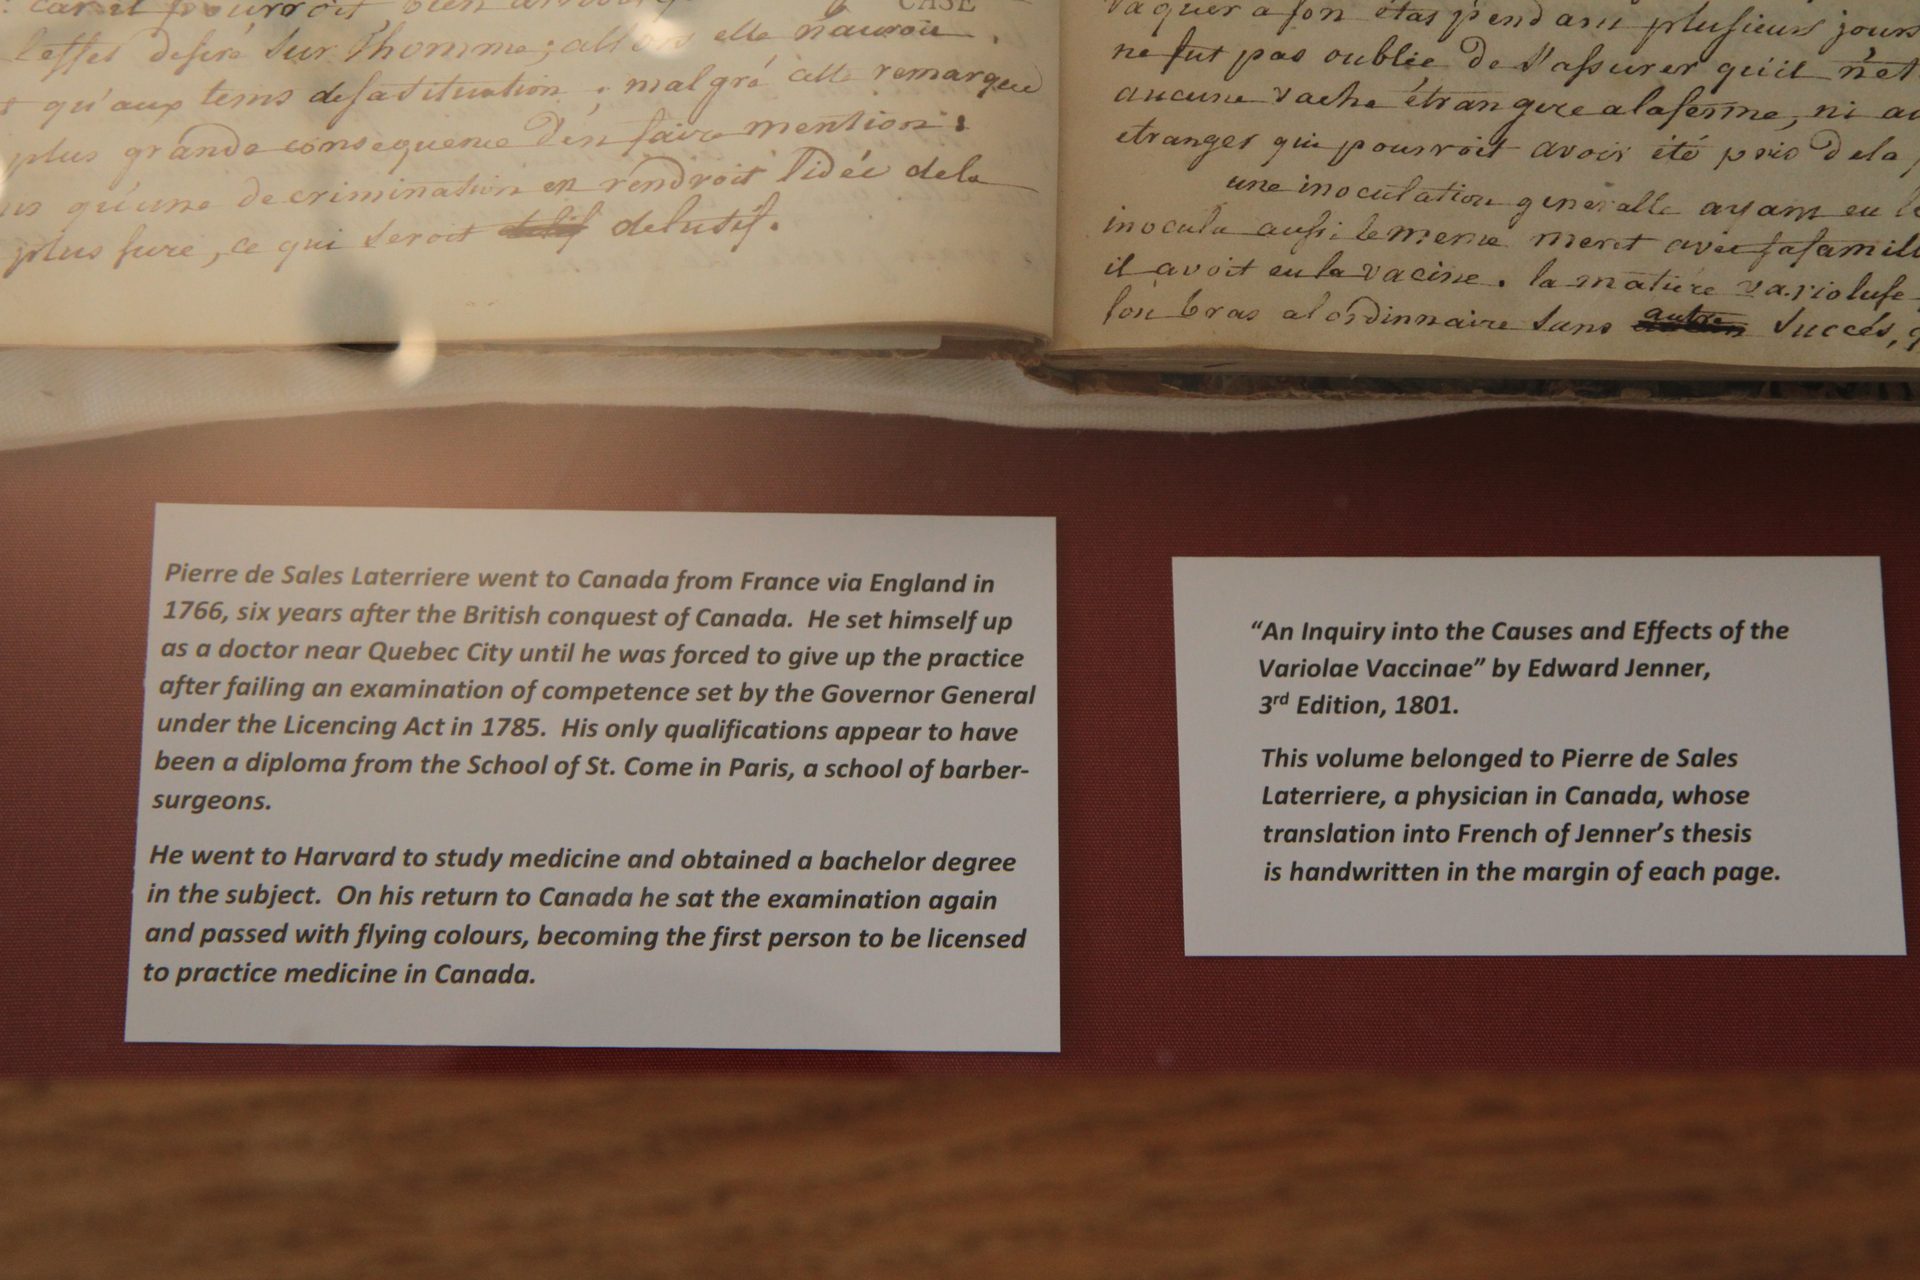 CASE
l'effet desiré sur l'homme; allors elle n'auroit
qu'aux tems desatituation; malgré cette remarque
plus grande consequence d'en faire mention:
qu'une decrimination en rendroit l'idée dela
plus sure, ce qui seroit delutif.
vaquer a son état pendant plusieurs jours
ne fut pas oubliée de s'assurer qu'il n'et
aucune vache étrangere alaferme, ni
etranges qui pourroit avoir été pris dela
une inoculation generalle ayant eu
inocula aussi lememe meret avec safamille
il avoit eu la vacine. la matiére varioluse
son bras al'ordinnaire sans autre succés,
Pierre de Sales Laterriere went to Canada from France via England in
1766, six years after the British conquest of Canada. He set himself up
as a doctor near Quebec City until he was forced to give up the practice
after failing an examination of competence set by the Governor General
under the Licencing Act in 1785. His only qualifications appear to have
been a diploma from the School of St. Come in Paris, a school of barber-
surgeons.
He went to Harvard to study medicine and obtained a bachelor degree
in the subject. On his return to Canada he sat the examination again
and passed with flying colours, becoming the first person to be licensed
to practice medicine in Canada.
“An Inquiry into the Causes and Effects of the
Variolae Vaccinae” by Edward Jenner,
3rd Edition, 1801.
This volume belonged to Pierre de Sales
Laterriere, a physician in Canada, whose
translation into French of Jenner’s thesis
is handwritten in the margin of each page.